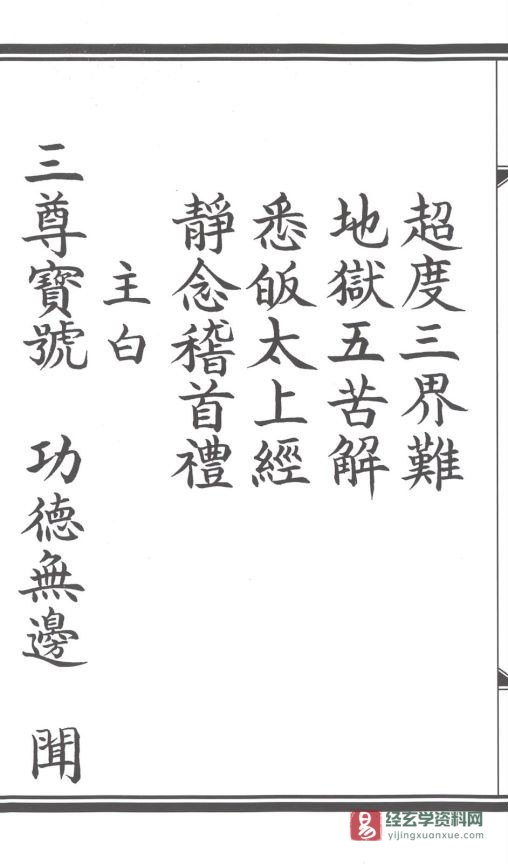 超度三界難
地獄五苦解
悉皈太上經
靜念稽首禮
主白
三尊寶號 功德無邊 聞
易 经玄学资料网
yijingxuanxue.com